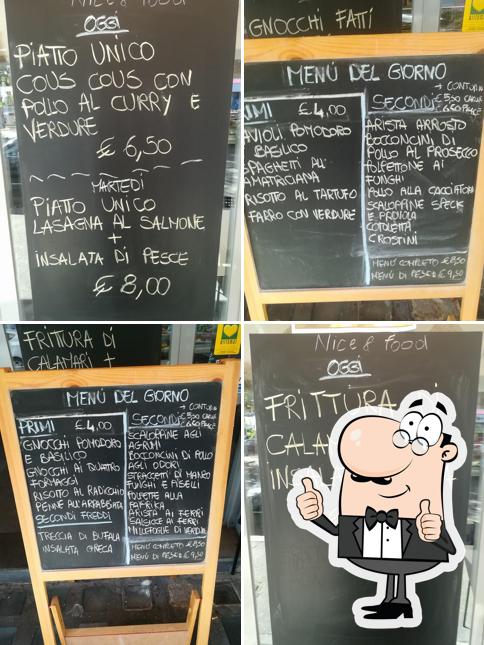 Nice & food
OGGI
PIATTO UNICO
COUS COUS CON
POLLO AL CURRY E
VERDURE
€ 6,50
MARTEDÌ
PIATTO UNICO
LASAGNA AL SALMONE
+
INSALATA DI PESCE
€ 8,00
GNOCCHI FATTI
MENÙ DEL GIORNO
RIMI £ 4,00
AVIOLI POMODORO
BASILICO
SPAGHETTI ALL'
AMATRICIANA
RISOTTO AL TARTUFO
FARRO CON VERDURE
+ CONTORNO
SECONDI € 5,50 CARNE
€ 6,50 PESCE
ARISTA ARROSTO
BOCCONCINI DI
POLLO AL PROSECCO
POLPETTONE AI
FUNGHI
POLLO ALLA CACCIATORA
SCALOPPINE SPECK
E PROVOLA
COTOLETTA
CROSTINI
MENÙ COMPLETO € 8,50
MENÙ DI PESCE € 9,50
FRITTURA DI
CALAMARI +
MENÙ DEL GIORNO
PRIMI £ 4,00
GNOCCHI POMODORO
E BASILICO
GNOCCHI AI QUATTRO
FORMAGGI
RISOTTO AL RADICCHIO
PENNE ALL'ARRABBIATA
SECONDI FREDDI
TRECCIA DI BUFALA
INSALATA GRECA
+ CONTORNO
SECONDI € 5,50 CARNE
€ 6,50 PESCE
SCALOPPINE AGLI
AGRUMI
BOCCONCINI DI POLLO
AGLI ODORI
STRACCETTI DI MANZO
FUNGHI E PISELLI
POLPETTE ALLA
PAPRIKA
ARISTA AI FERRI
SALSICCE AI FERRI
MILLEFOGLIE DI VERDURE
MENÙ COMPLETO € 8,50
MENÙ DI PESCE € 9,50
Nice & food
OGGI
FRITTURA
CALA
INS